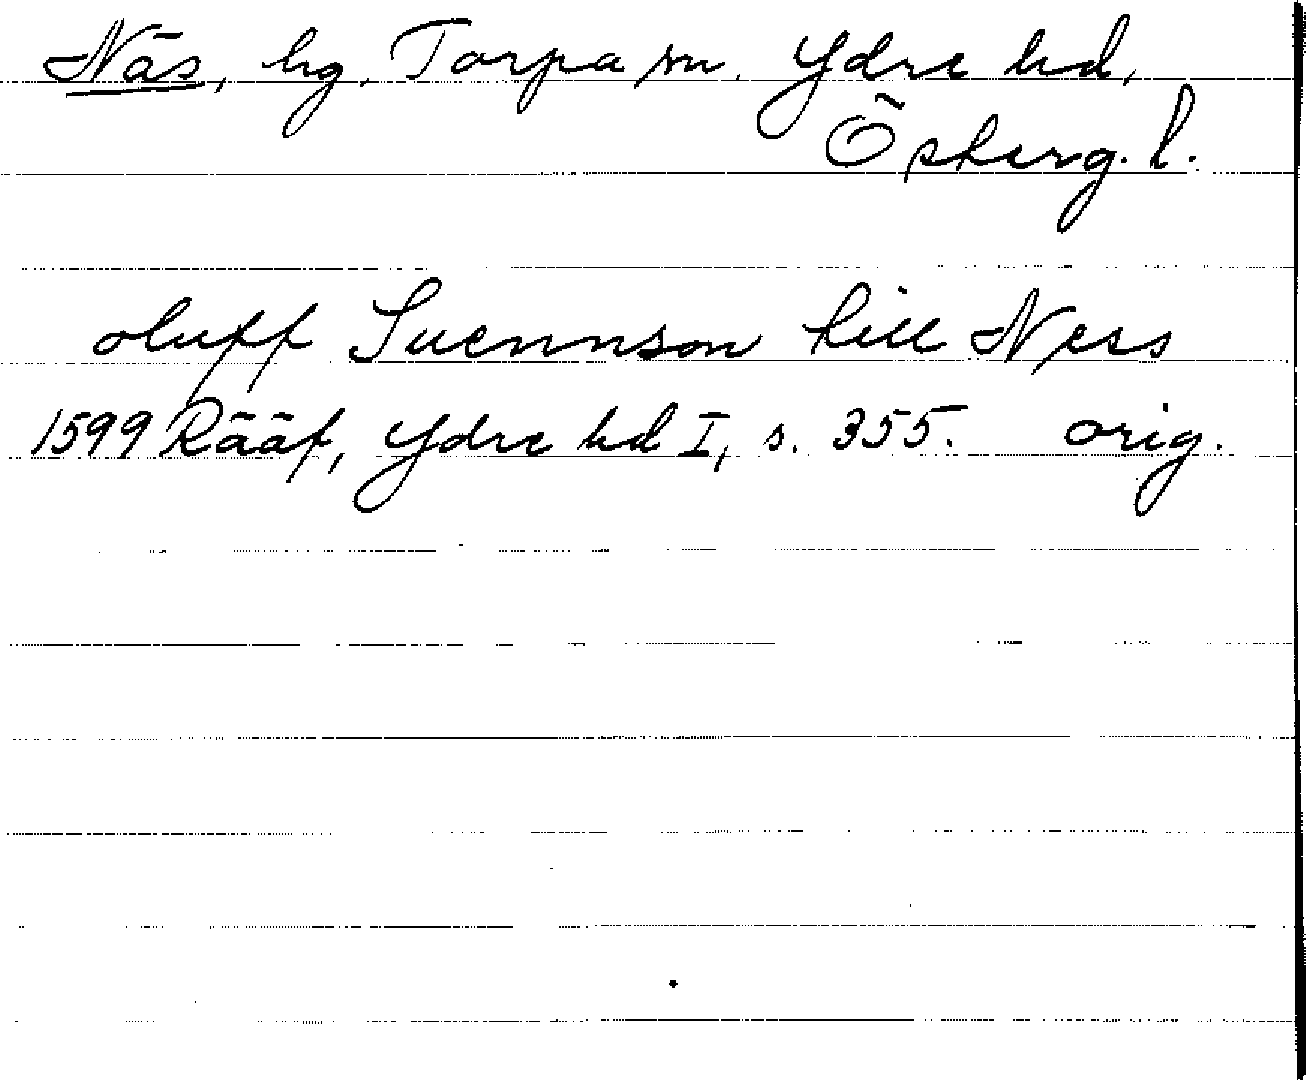 Näs, hg, Torpa sn. Ydre hd,
Österg. l.
oluff Suennson till Ness
1599 Rääf, Ydre hd I, s. 355. orig.